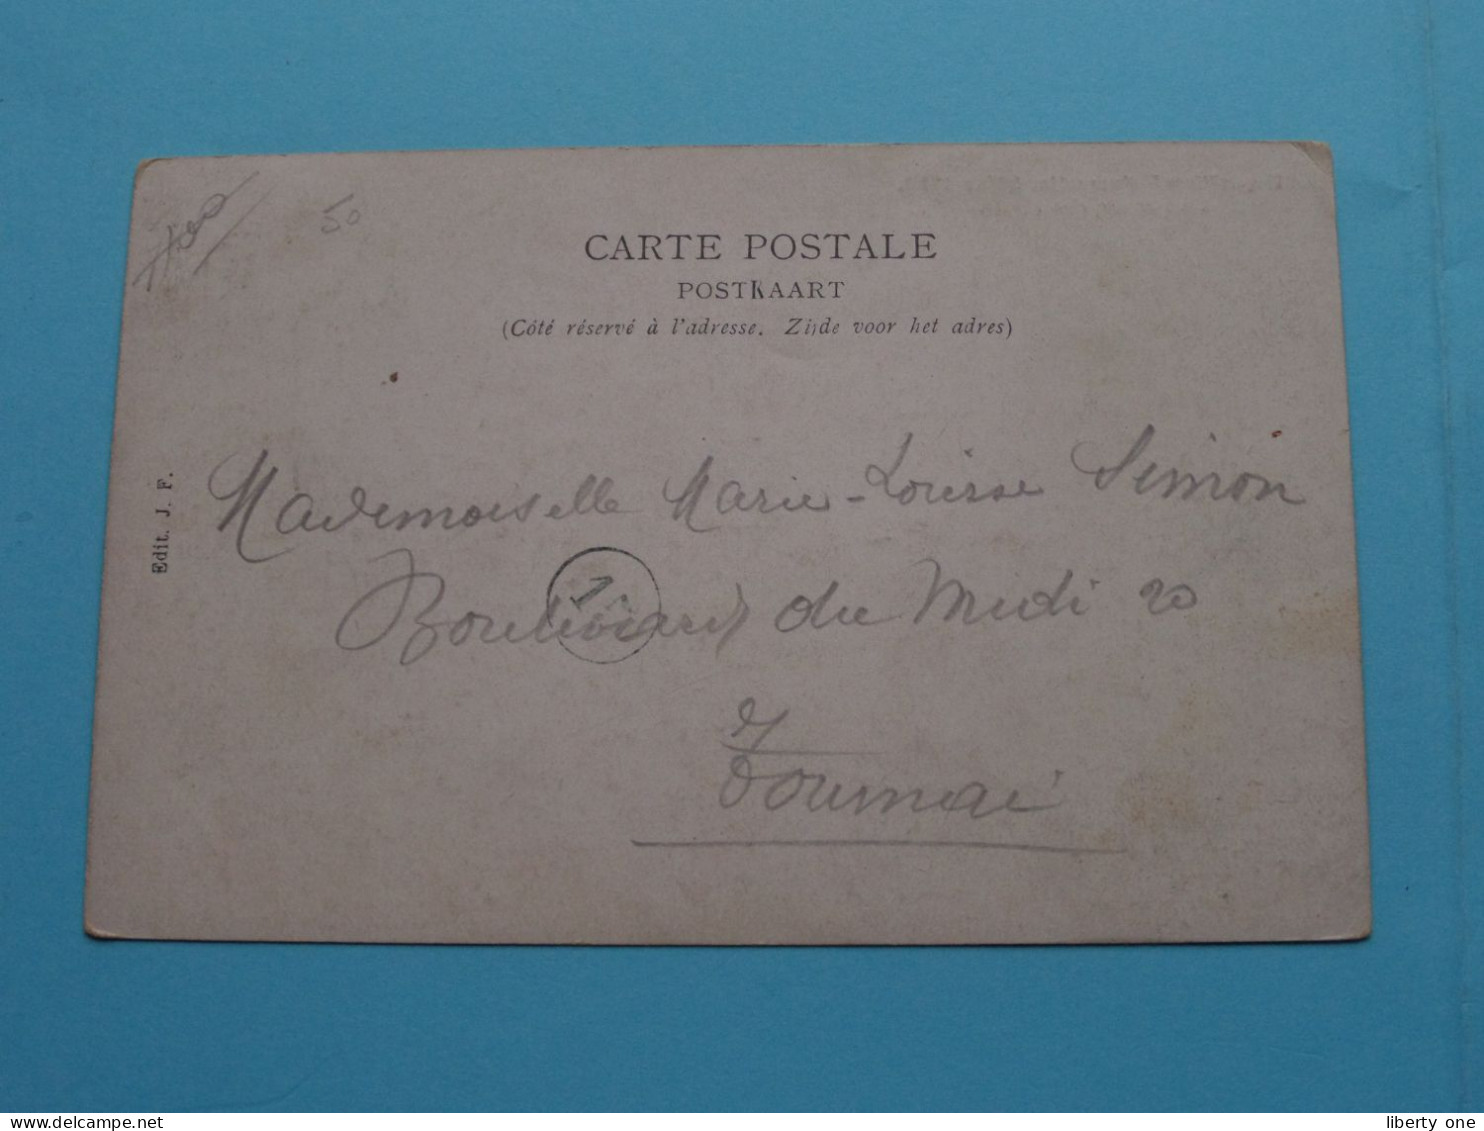 50
CARTE POSTALE
POSTKAART
(Côté réservé à l'adresse. Zijde voor het adres)
Edit. J. F.
Mademoiselle Marie-Louise Simon
Boulevard du Midi 20
1
Tournai
liberty one